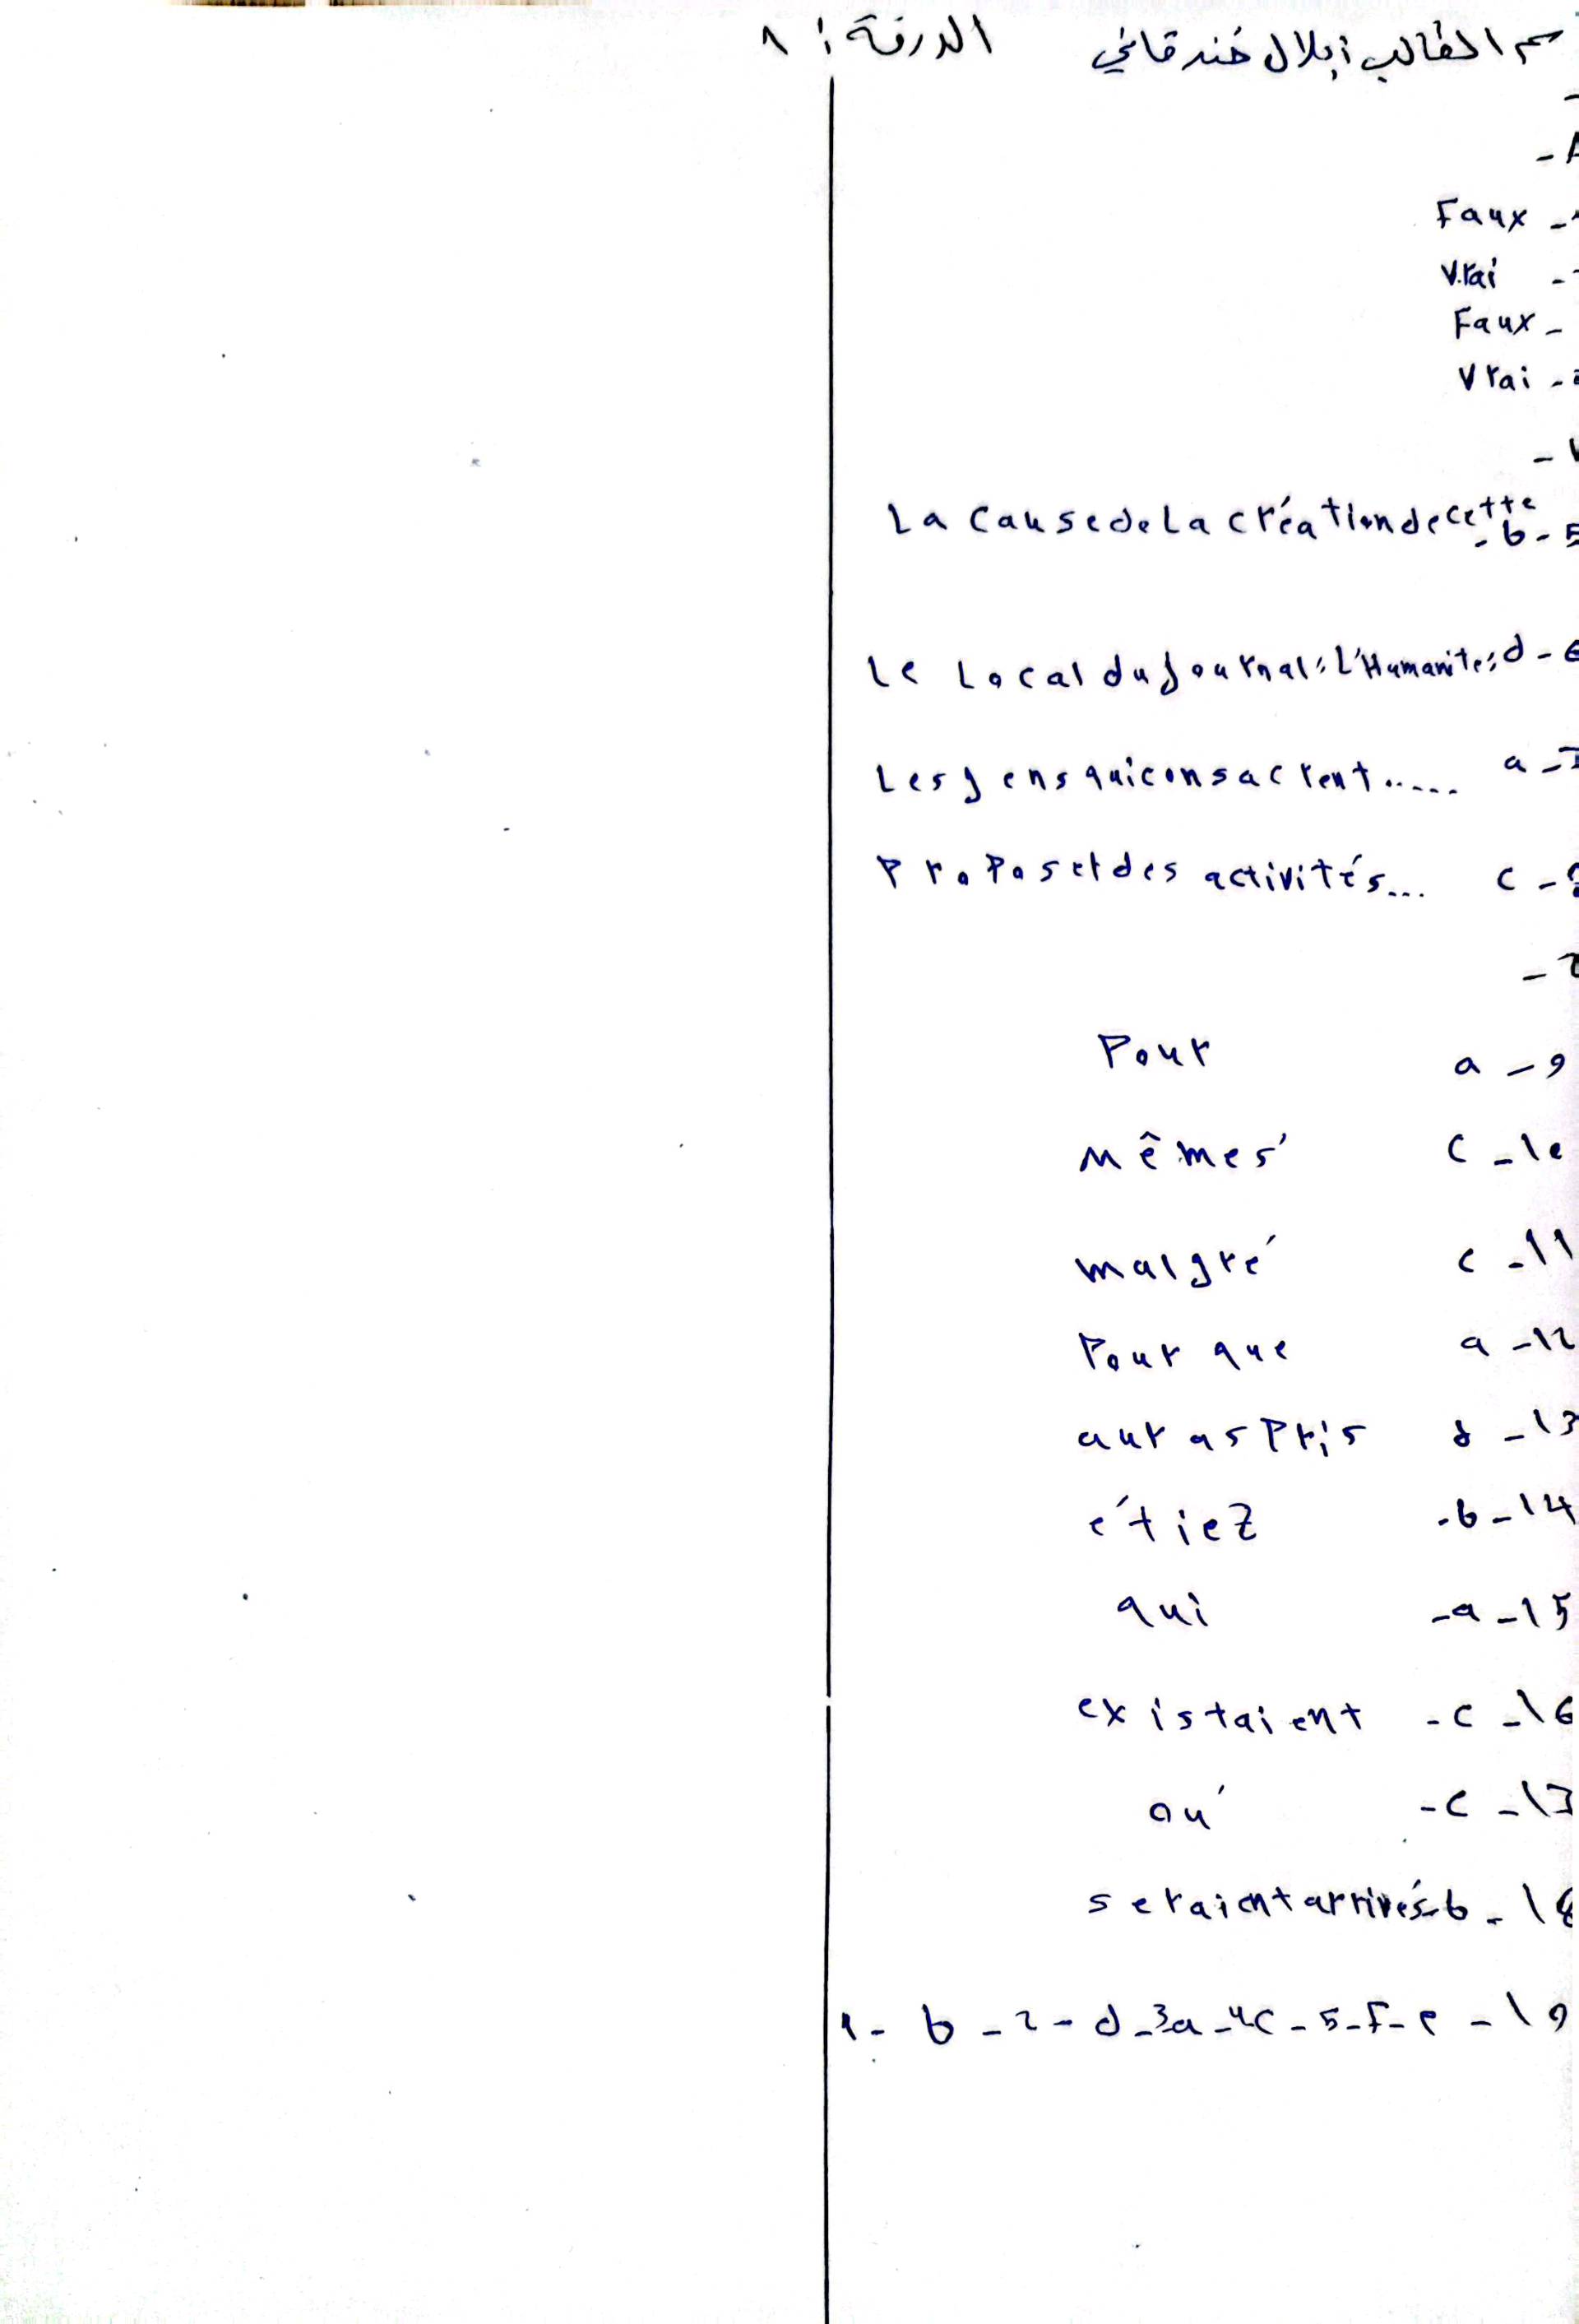 سم الطالب: بلال خندقاني الورقة: ١
- A
Faux -
Vrai -
Faux -
Vrai -
-
La cause de La création de cette - b - 5
Le Local du Journal: L'Humanité; d - 6
Les gens qui consacrent..... a - 7
Proposer des activités... c - 8
-
Pour a - 9
Mêmes c - 10
malgré c - 11
Pour que a - 12
auras Pris d - 13
étiez - b - 14
qui - a - 15
existaient - c - 16
où - c - 17
seraient arrivés - b - 18
1 - b - 2 - d - 3a - 4c - 5 - F - e - 19